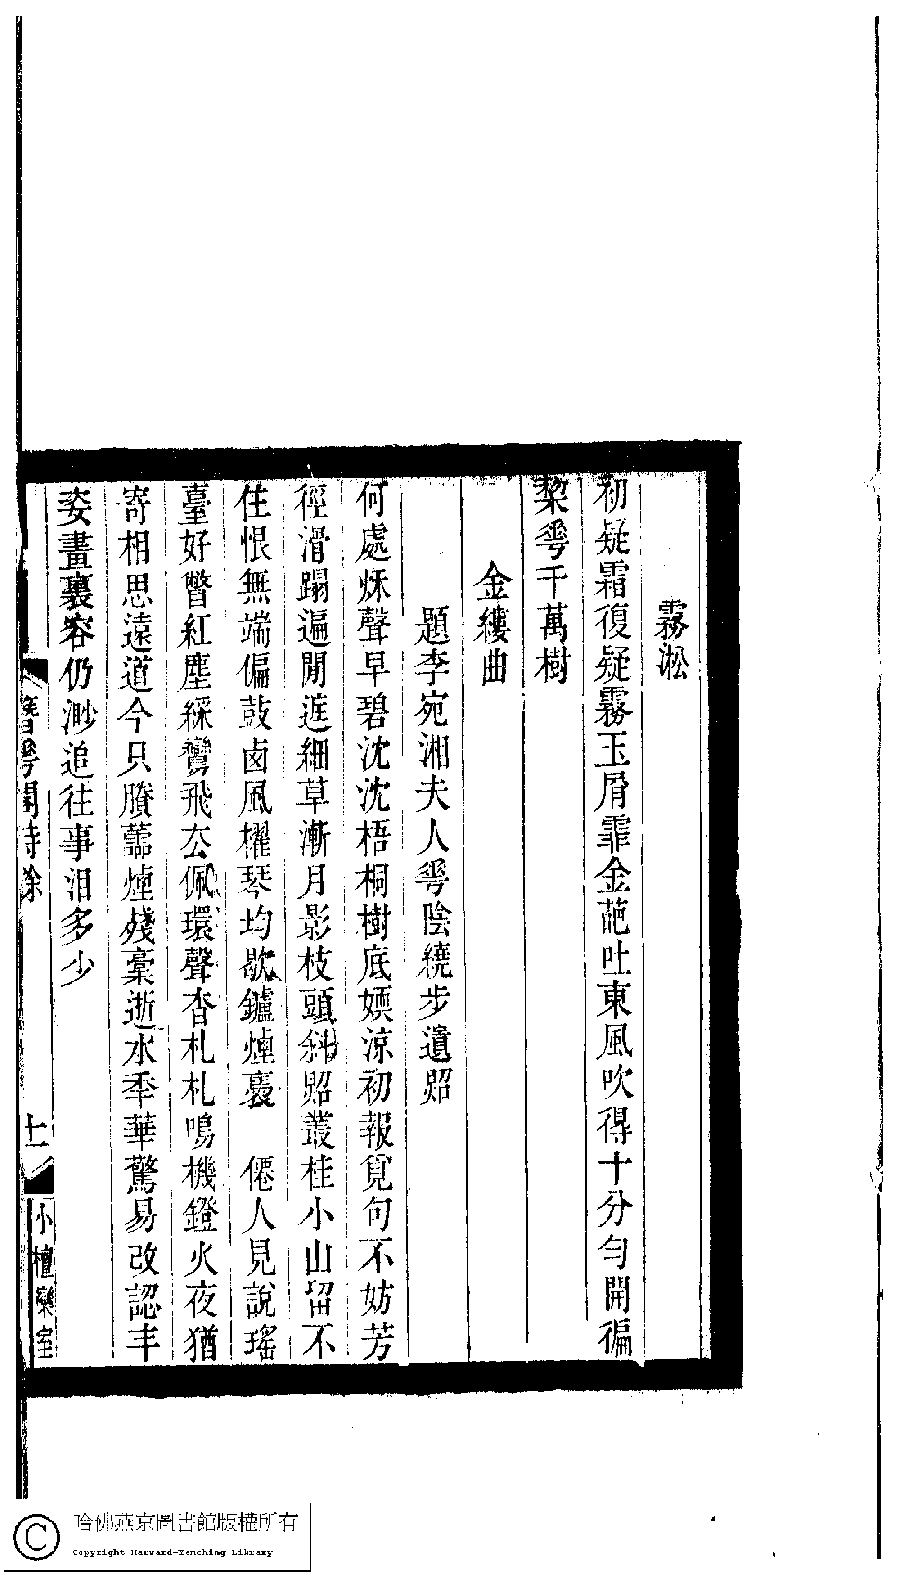 霧淞
初疑霜復疑霧玉屑霏金葩吐東風吹得十分勻開徧
棃雩千萬樹
金縷曲
題李宛湘夫人雩陰繞步遺照
何處秌聲早碧沈沈梧桐樹底嫩涼初報覓句不妨芳
徑滑蹋遍閒逛細草漸月影枝頭斜照叢桂小山留不
住恨無端偏鼓鹵風櫂琴均歇鑪煙裊　僊人見說瑤
臺好瞥紅塵綵鸞飛厺佩環聲杳札札鳴機鐙火夜猶
寄相思遠道今只賸蠹煙殘稾逝水秊華驚易改認丰
姿畫裏容仍渺追往事泪多少
雩閒詩餘
十一
小檀欒室
哈佛燕京圖書館版權所有
Copyright Harvard-Yenching Library